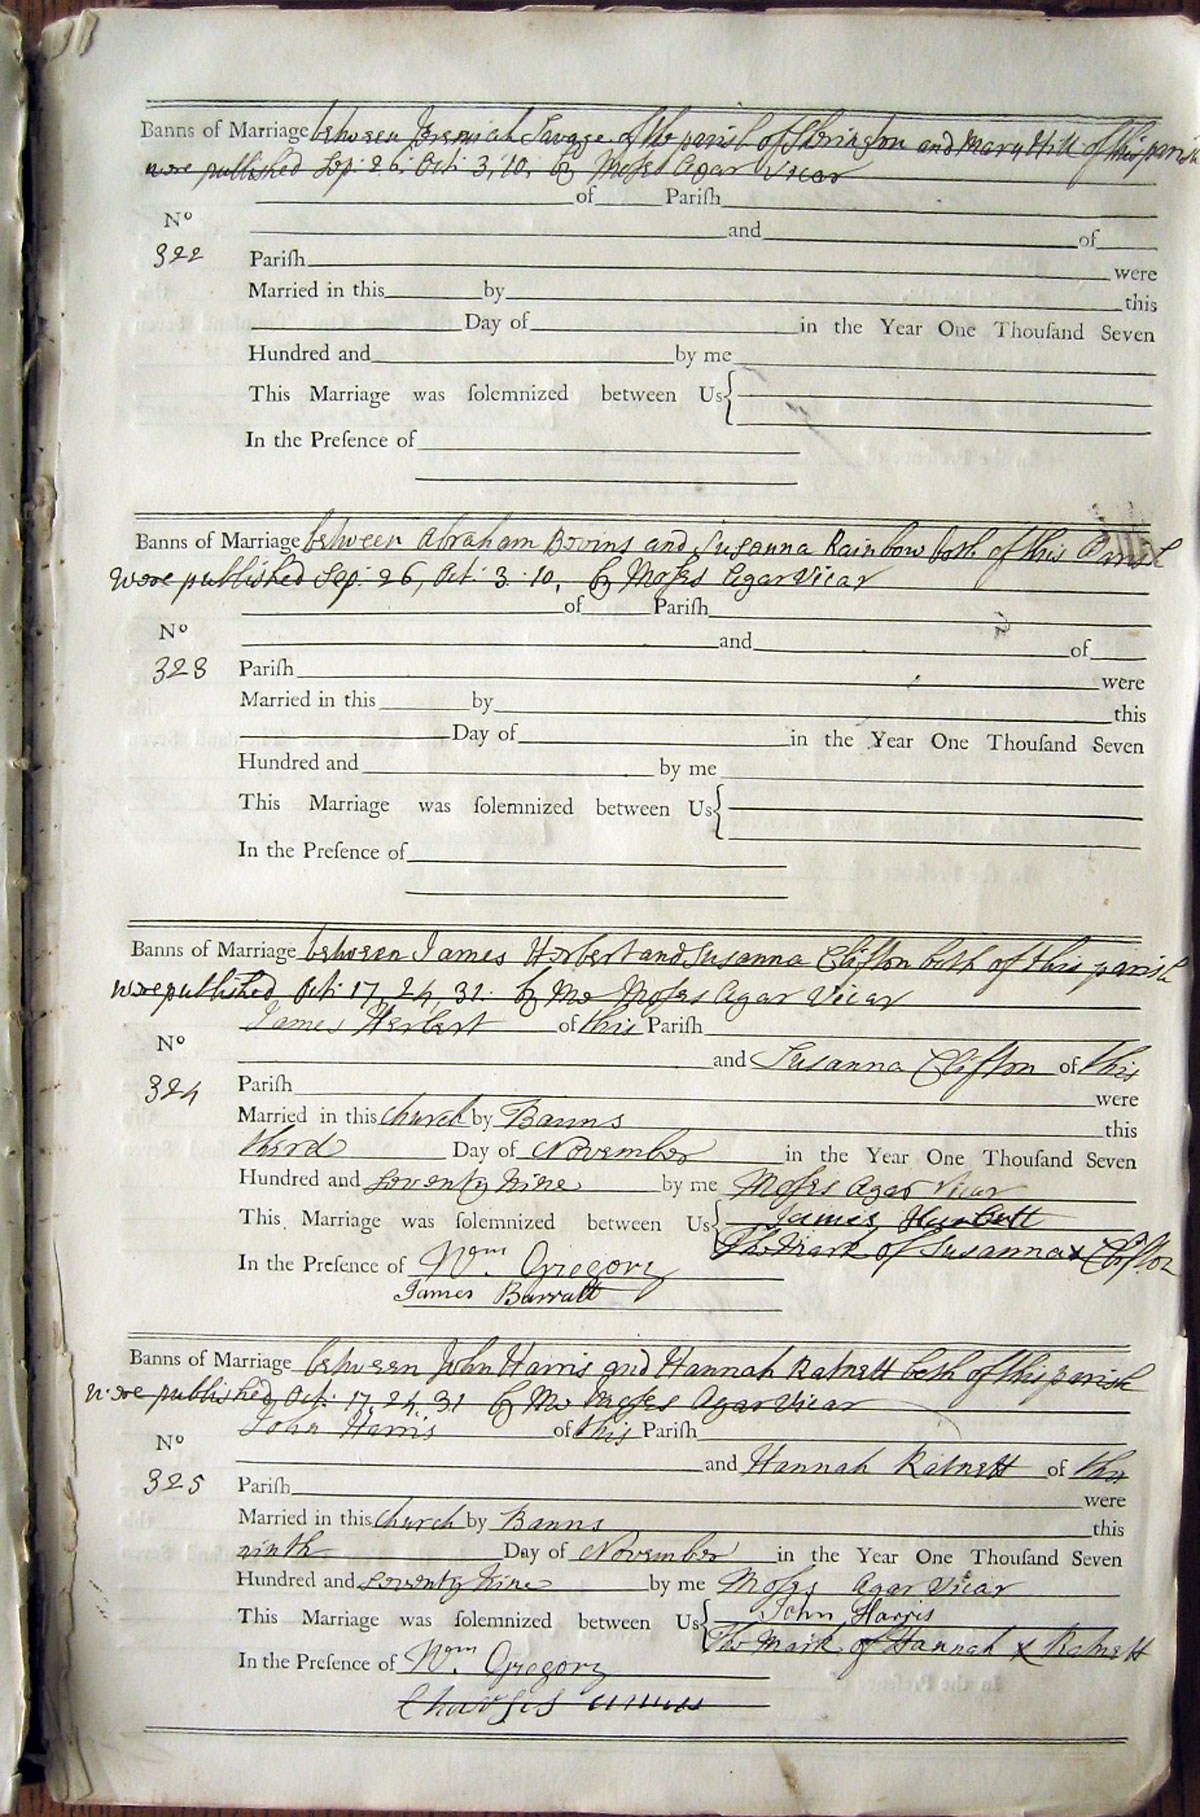 Banns of Marriage between Jeremiah Savage of the parish of and Mary Hill of this parish
were published Sep: 26. Oct: 3, 10, by Moſes Agar Vicar
of Pariſh
No
and of
322
Pariſh were
Married in this by this
Day of in the Year One Thouſand Seven
Hundred and by me
This Marriage was ſolemnized between Us
In the Preſence of
Banns of Marriage between Abraham Bovins and Susanna Rainbow both of this Parish
were published Sep: 26, Oct: 3. 10, by Moſes Agar Vicar
of Pariſh
No
and of
323
Pariſh were
Married in this by this
Day of in the Year One Thouſand Seven
Hundred and by me
This Marriage was ſolemnized between Us
In the Preſence of
Banns of Marriage between James Herbert and Susanna Clifton both of this parish
were published Oct: 17, 24, 31. by Me Moſes Agar Vicar
James Herbert of this Pariſh
No
and Susanna Clifton of this
324
Pariſh were
Married in this church by Banns this
third Day of November in the Year One Thouſand Seven
Hundred and seventy nine by me Moſes Agar Vicar
This Marriage was ſolemnized between Us James Hurbutt
The Mark of Susanna x Clifton
In the Preſence of Wm. Gregory
James Barratt
Banns of Marriage between John Harris and Hannah Ratnett both of this parish
were published Oct: 17, 24, 31 by Me Moſes Agar Vicar
John Harris of this Pariſh
No
and Hannah Ratnett of this
325
Pariſh were
Married in this church by Banns this
ninth Day of November in the Year One Thouſand Seven
Hundred and seventy nine by me Moſes Agar Vicar
This Marriage was ſolemnized between Us John Harris
The Mark of Hannah x Ratnett
In the Preſence of Wm. Gregory